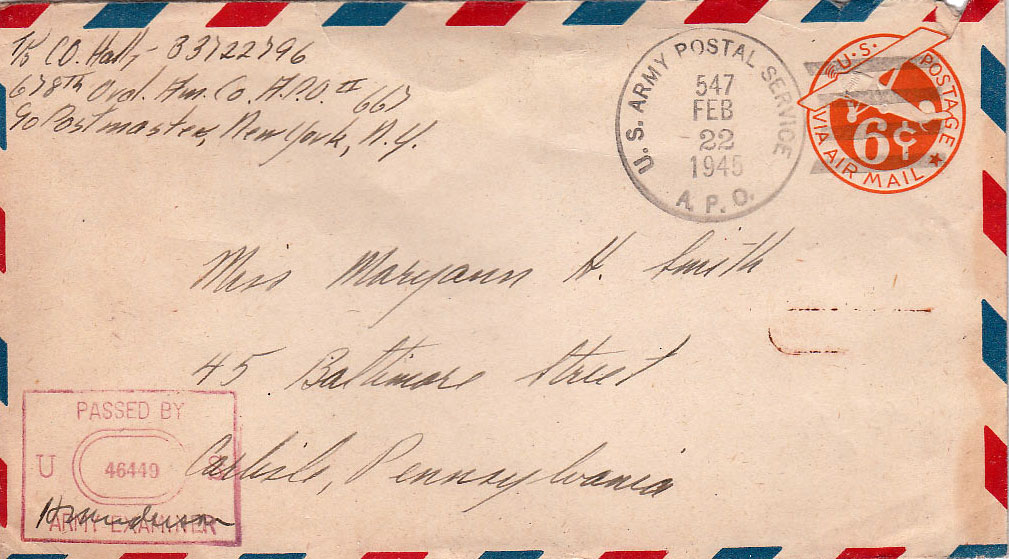 T/5 C.O. Hall, - 33722796
678th Ord. Am. Co. A.P.O. # 667
c/o Postmaster, New York, N.Y.
U.S. ARMY POSTAL SERVICE
547
FEB
22
1945
A.P.O.
U.S. POSTAGE
6¢
VIA AIR MAIL
Miss Maryann H. Smith
45 Baltimore Street
Carlisle, Pennsylvania
PASSED BY
U 46449 S
ARMY EXAMINER